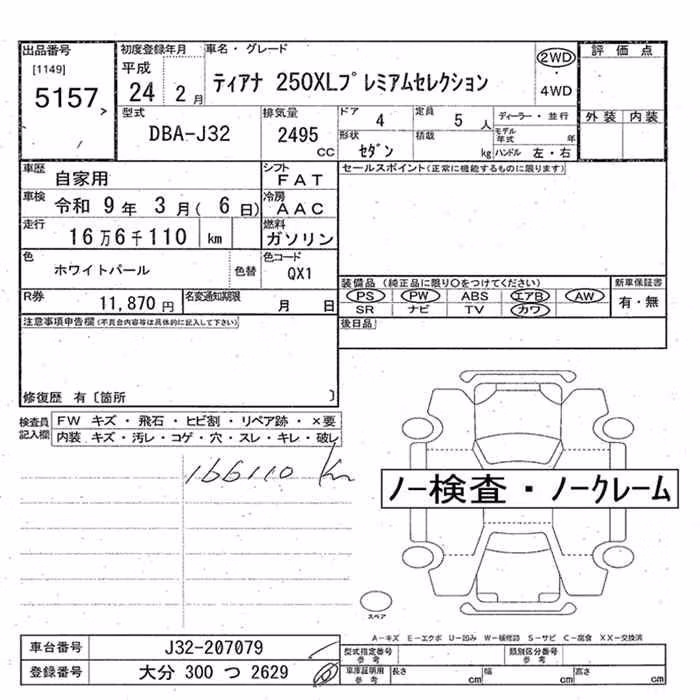 出品番号 初度登録年月 車名・グレード 評価点
[1149] 平成 2WD
5157 24 2月 ティアナ 250XLプレミアムセレクション 4WD
型式 排気量 ドア 4 定員 5人 ディーラー・並行 外装 内装
DBA-J32 2495 CC 形状 セダン 積載 kg モデル年式 年
ハンドル 左・右
車歴 自家用 シフト FAT セールスポイント(正常に機能するものに限ります)
車検 令和 9年 3月( 6日) 冷房 AAC
走行 16万6千110 km 燃料 ガソリン
色 ホワイトパール 色替 色コード QX1
装備品(純正品に限り○をつけてください) 新車保証書
R券 11,870円 名変通知期限 月 日 PS PW ABS エアB AW 有・無
SR ナビ TV カワ
注意事項申告欄(不具合内容等は具体的に記入して下さい) 後日品
修復歴 有〔箇所 〕
検査員記入欄 FW キズ・飛石・ヒビ割・リペア跡・×要
内装 キズ・汚レ・コゲ・穴・スレ・キレ・破レ
166110 Km
ノー検査・ノークレーム
スペア
A-キズ E-エクボ U-凹み W-補修跡 S-サビ C-腐食 XX-交換済
車台番号 J32-207079 型式指定番号 参考 類別区分番号 参考
登録番号 大分 300 つ 2629 車庫証明用 参考 長さ cm 幅 cm 高さ cm